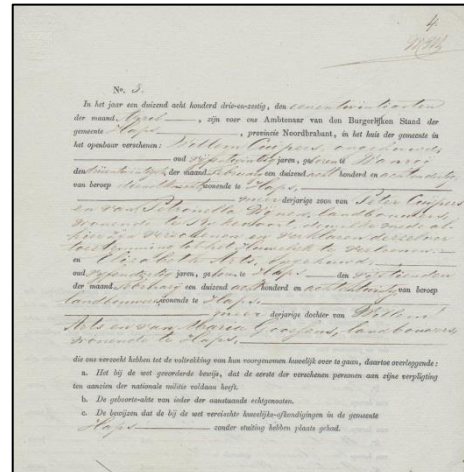 4.
No. 3.
In het jaar een duizend acht honderd drie-en-zestig, den eenentwintigsten
der maand April, zijn voor ons Ambtenaar van den Burgerlijken Stand der
gemeente Haps, provincie Noordbrabant, in het huis der gemeente in
het openbaar verschenen: Willem Cuijpers, ongehuwd,
oud vijfentwintig jaren, geboren te Wanroij
den der maand Februarij een duizend acht honderd en achtendertig
van beroep dienstknecht wonende te Haps,
meerderjarige zoon van Peter Cuijpers
en van Petronella landbouwers,
wonende te
verschenen en verklarende
toestemming tot het Huwelijk te verleenen.
en Elizabeth Arts, ongehuwd,
oud vijfendertig jaren, geboren te Haps den vijftienden
der maand Februarij een duizend acht honderd en achtentwintig van beroep
landbouwster wonende te Haps,
meerderjarige dochter van Willem
Arts en van Maria Goossens, landbouwers,
wonende te Haps,
die ons verzocht hebben tot de voltrekking van hun voorgenomen huwelijk over te gaan, daartoe overleggende:
a. Het bij de wet gevorderde bewijs, dat de eerste der verschenen personen aan zijne verpligting
ten aanzien der nationale militie voldaan heeft.
b. De geboorte-akte van ieder der aanstaande echtgenooten.
c. De bewijzen dat de bij de wet vereischte huwelijks-afkondigingen in de gemeente
Haps zonder stuiting hebben plaats gehad.